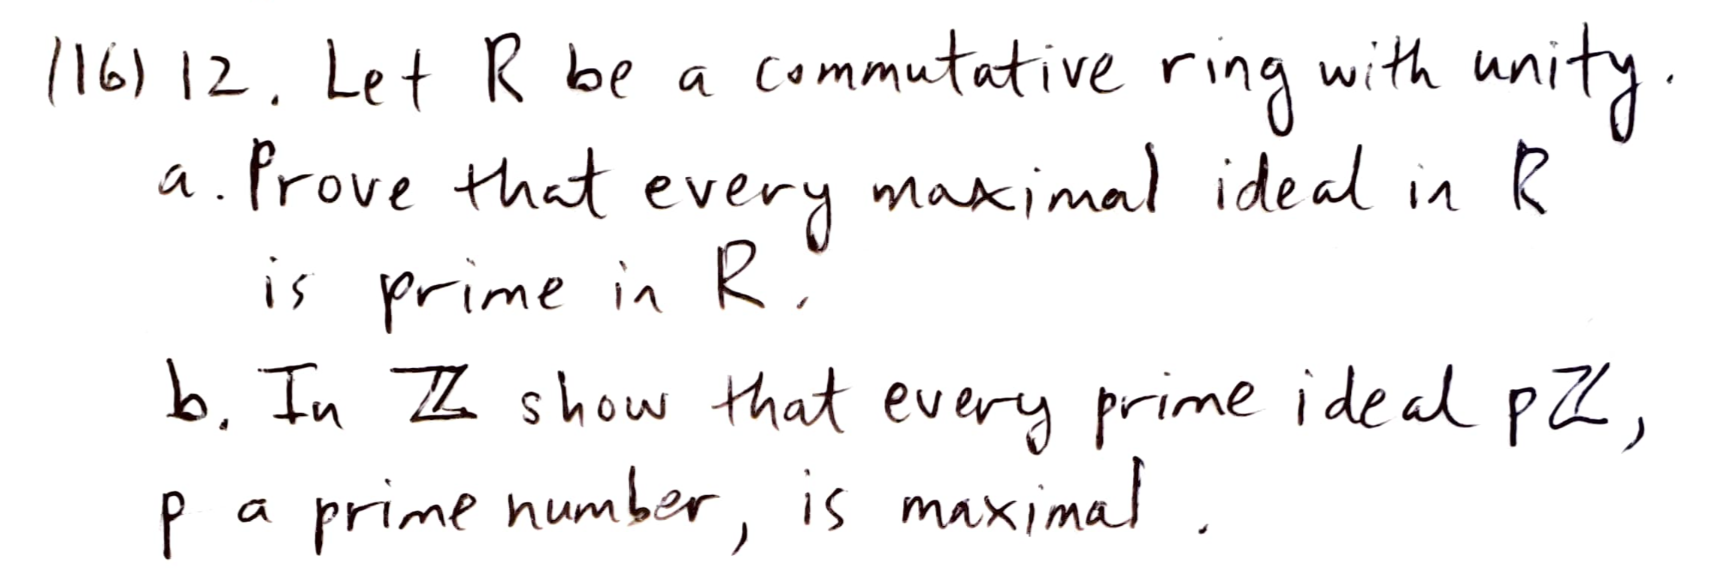 (16) 12. Let R be a commutative ring with unity.
a. Prove that every maximal ideal in R
is prime in R.
b. In ℤ show that every prime ideal pℤ,
p a prime number, is maximal.